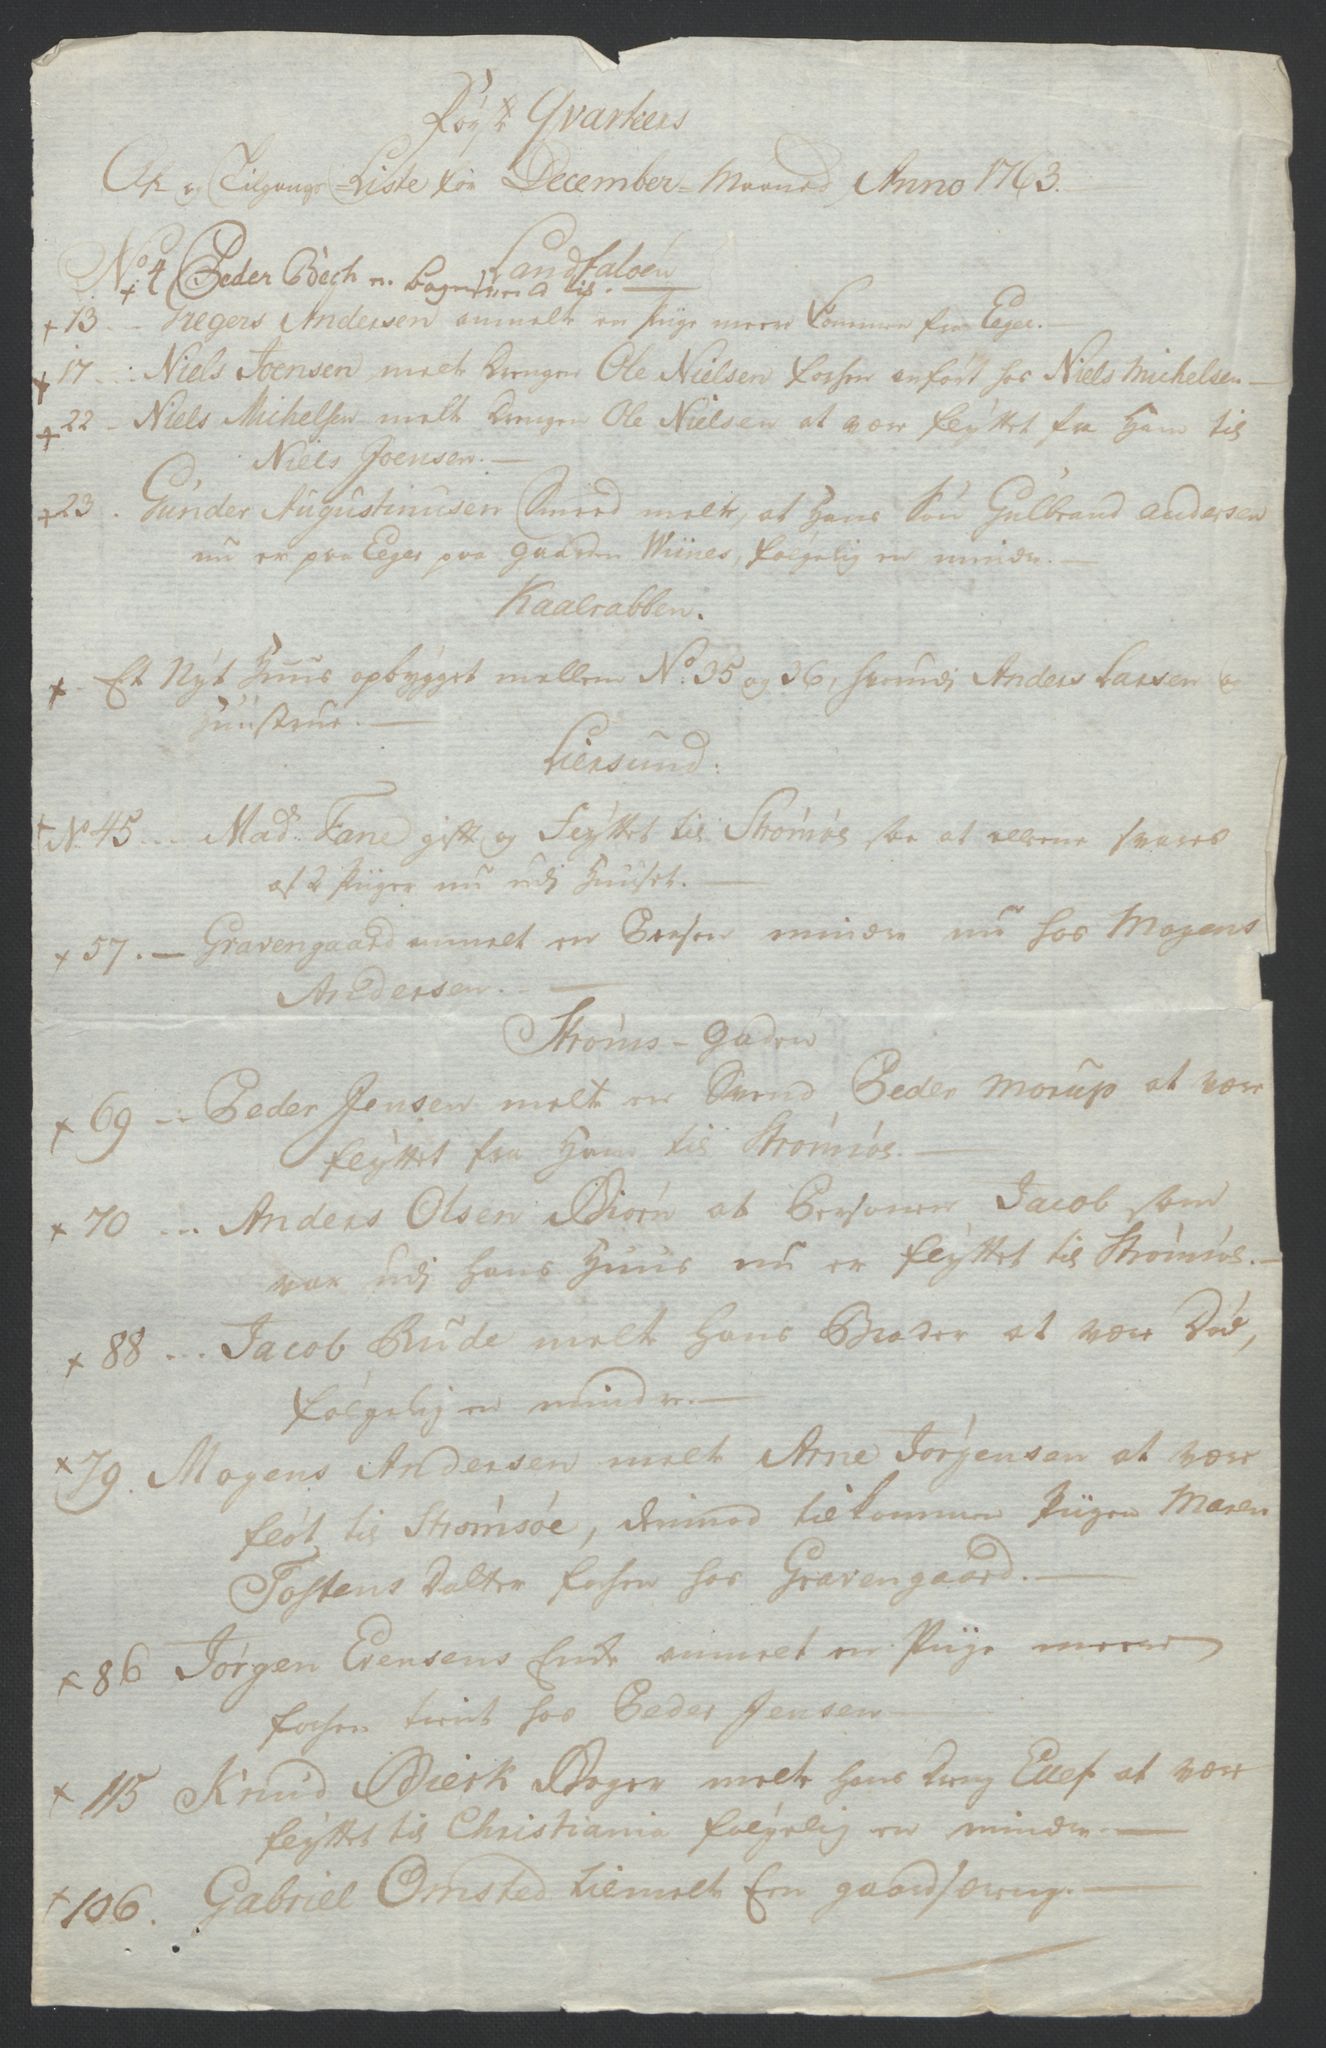 Qvarteers
Af og Tilgangs-Liste for December-Maaned Anno 1763.
Landfaløen
No 4 Peder Bech en
+ 13 Tregers Andersen anmelt en Piige meere kommen fra Eeger.
+ 17 Niels Joensen melt Drengen Ole Nielsen forhen anført hos Niels Michelsen
+ 22 Niels Michelsen melt Drengen Ole Nielsen at være fløttet fra Ham til
Niels Joensen.
+ 23. Gunder Augustinusen Smeed melt, at Hans Søn Gulbrand andersen
nu er paa Eeger paa gaarden Wiines, følgelig en mindre.
Kaalrabben.
+ Et Nÿt Huus opbÿgget mellem No. 35 og 36, hvorudi Anders Larsen og
Huustrue.
Liersund.
+ No. 45 Mad. Fane gift og fløttet til Strømsøe saa at alleene svares
af 2 Piiger nu udi Huuset.
+ 57. Gravengaard anmelt en Person mindre nu hos Mogens
Andersen.
Strøms-gaden
+ 69 Peder Jensen melt en Svend Peder Morup at være
fløttet fra Ham til Strømsøe.
+ 70 Anders Olsen Biørn at Personen Jacob som
var udi Hans Huus nu er fløttet til Strømsøe.
+ 88 Jacob Rude melt Hans Broder at være Død,
følgelig en mindre.
+ 79. Mogens Andersen melt Arne Jørgensen at være
fløt til Strømsøe, derimod tilkommen Piigen Maren
Tostens Datter forhen hos Gravengaard.
+ 86 Jørgen Evensens Enke anmelt en Piige meere
forhen tient hos Peder Jensen
+ 115 Knud Bierk Bager melt Hans Dreng Ellef at være
fløttet til Christiania følgelig en mindre.
+ 106. Gabriel Omsted tilmelt Een gaardsdreng.